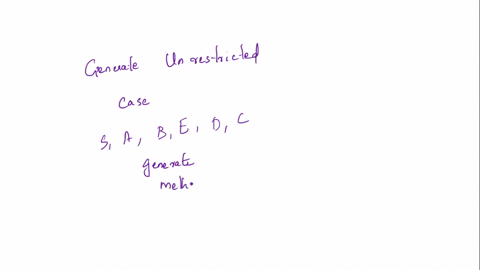 Generate Unrestricted
case
S, A, B, E, D, C
generate
meth